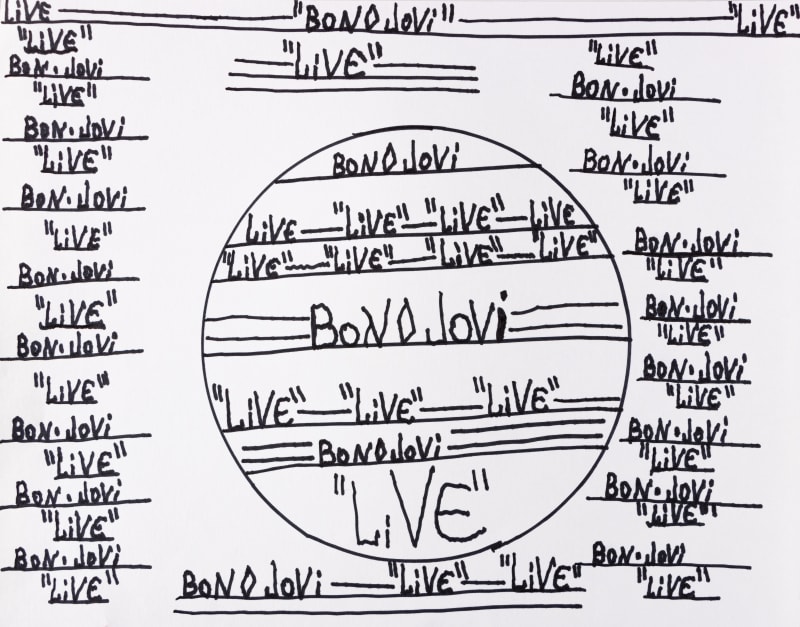 LiVE "BON◊JOVi" "LiVE"
"LiVE"
BON·JOVi
"LiVE"
BON·JOVi
"LiVE"
BON·JOVi
"LiVE"
BON·JOVi
"LiVE"
BON·JOVi
"LiVE"
BON·JOVi
"LiVE"
BON·JOVi
"LiVE"
BON·JOVi
"LiVE"
"LiVE"
BON◊JOVi
LiVE — "LiVE" — "LiVE" — LiVE
"LiVE" — "LiVE" — "LiVE" — "LiVE"
BON◊JOVi
"LiVE" — "LiVE" — "LiVE"
BON◊JOVi
"LiVE"
BON◊JOVi — "LiVE" — "LiVE"
"LiVE"
BON·JOVi
"LiVE"
BON·JOVi
"LiVE"
BON·JOVi
"LiVE"
BON·JOVi
"LiVE"
BON·JOVi
"LiVE"
BON·JOVi
"LiVE"
BON·JOVi
"LiVE"
BON·JOVi
"LiVE"